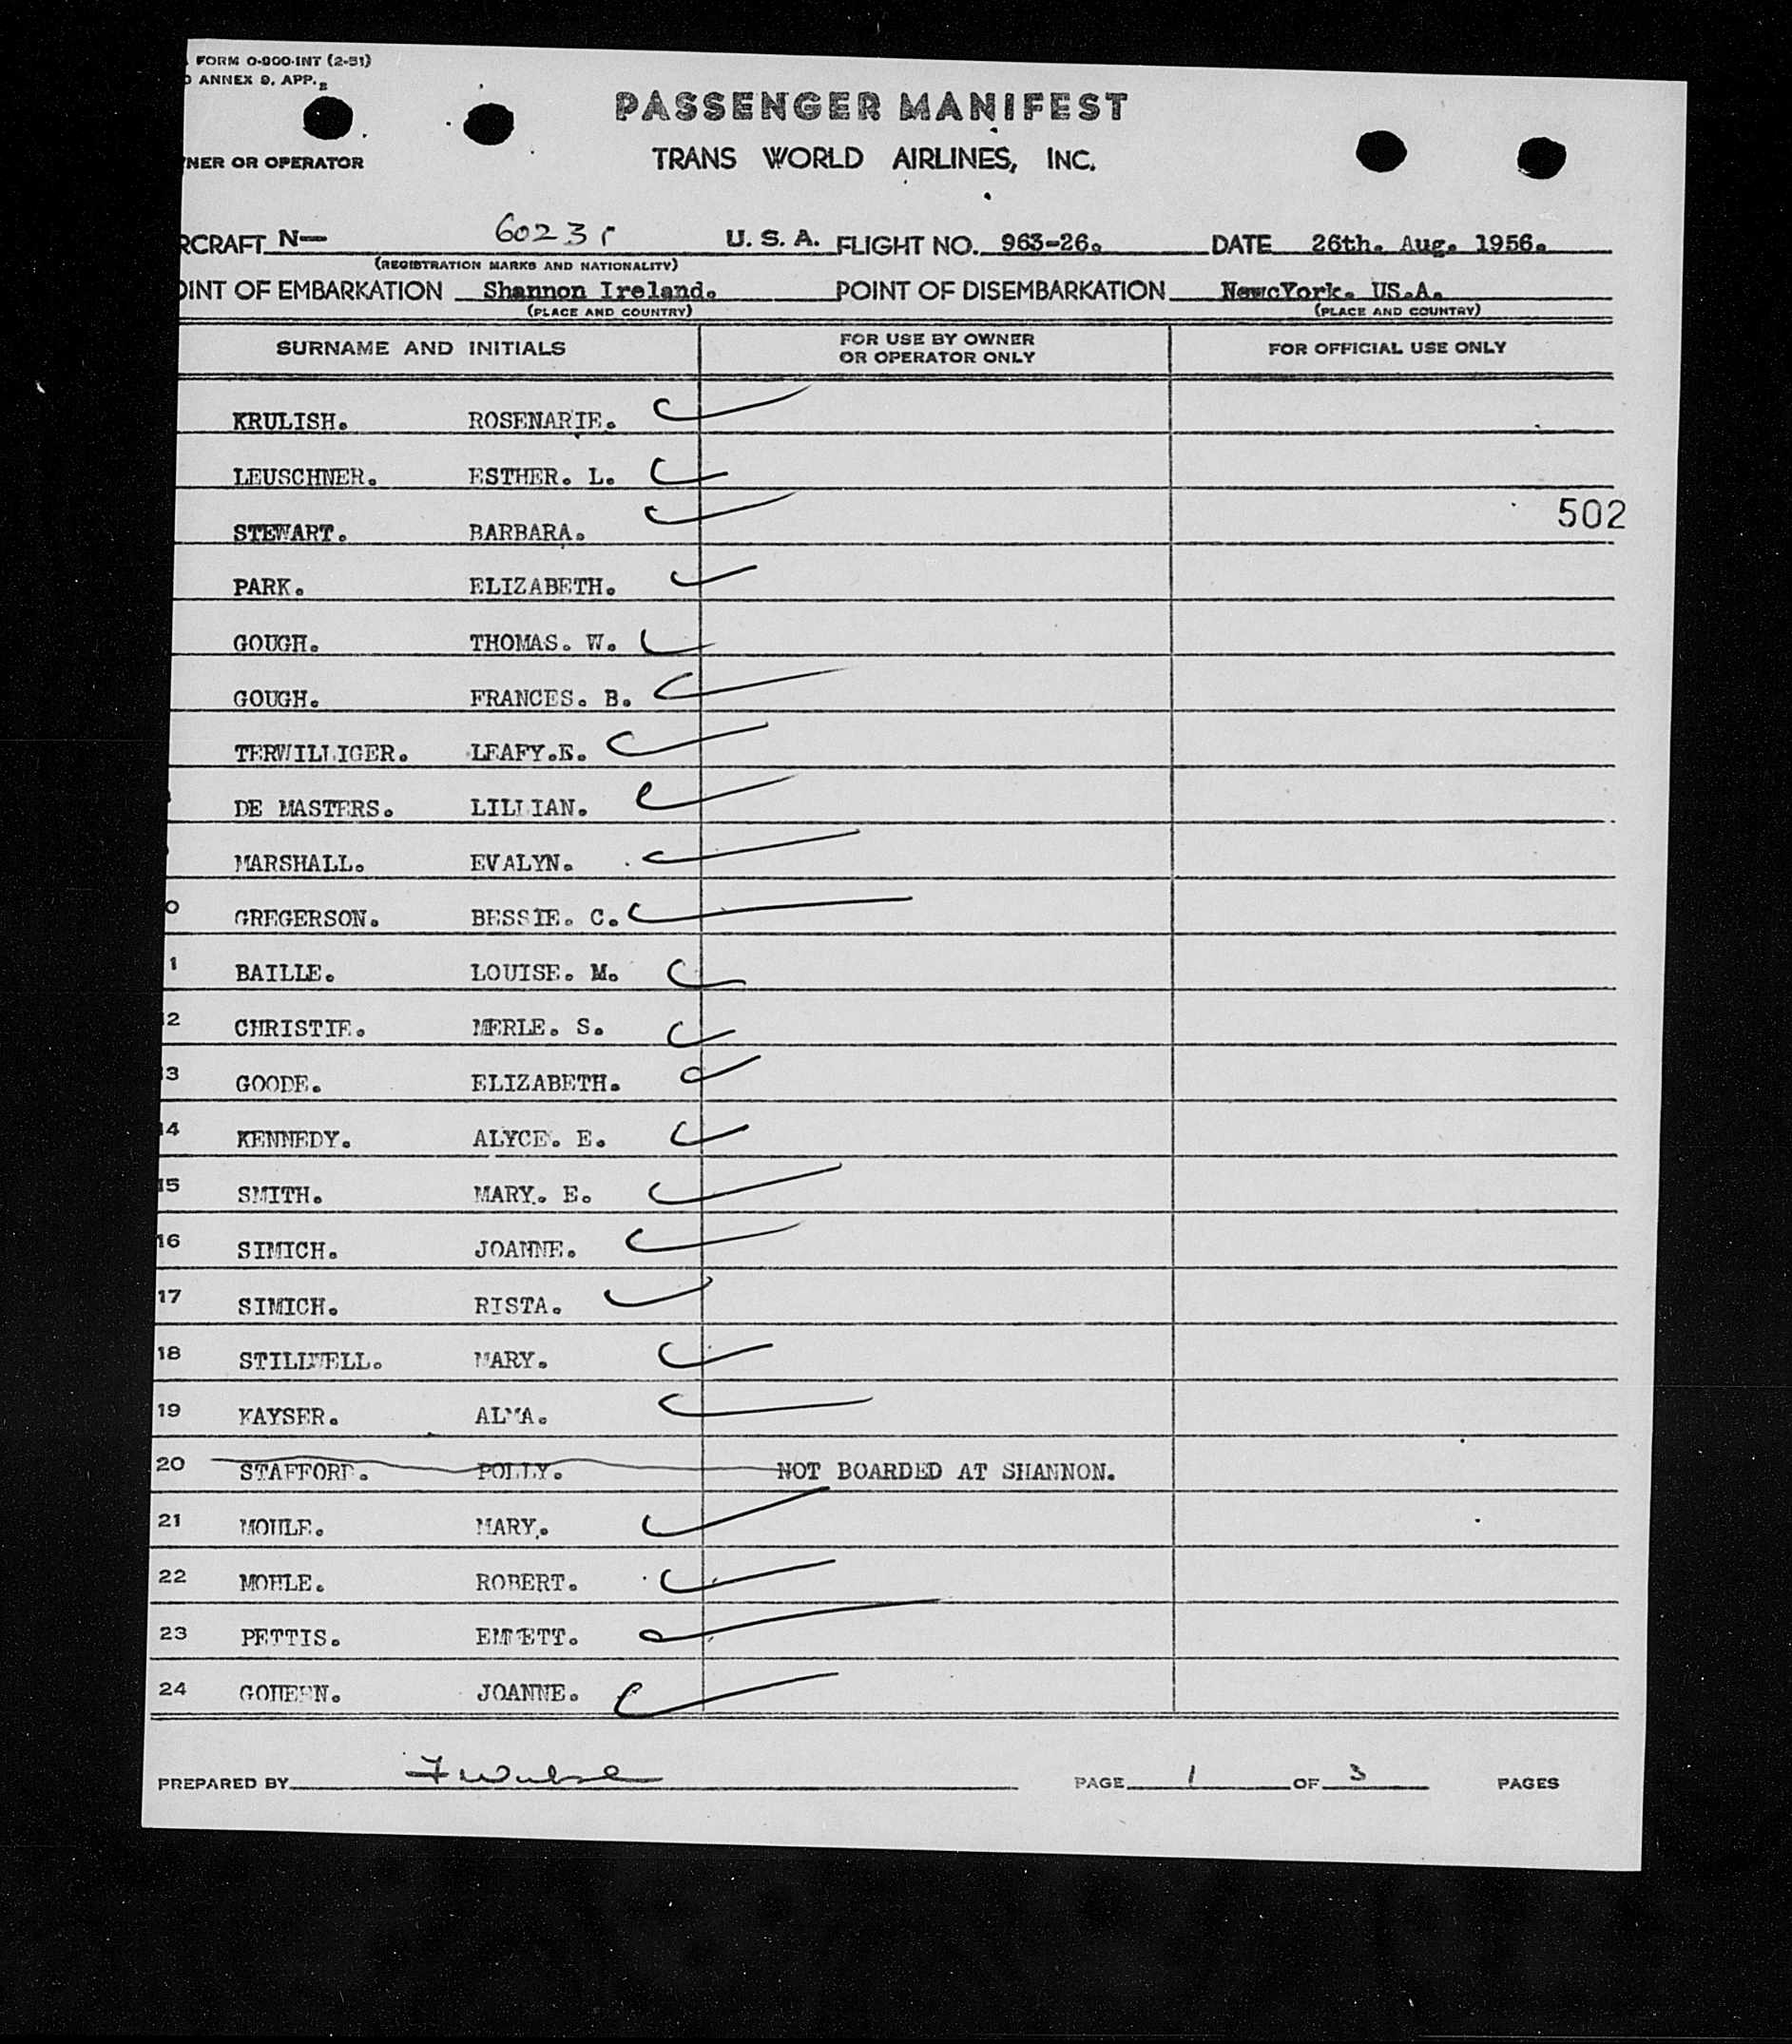 FORM O-900-INT (2-51)
ANNEX 9. APP. 2
PASSENGER MANIFEST
NER OR OPERATOR TRANS WORLD AIRLINES, INC.
RCRAFT N— 6023 U. S. A. FLIGHT NO. 963-26. DATE 26th. Aug. 1956.
(REGISTRATION MARKS AND NATIONALITY)
OINT OF EMBARKATION Shannon Ireland. POINT OF DISEMBARKATION NewcYork. US.A.
(PLACE AND COUNTRY) (PLACE AND COUNTRY)
SURNAME AND INITIALS FOR USE BY OWNER OR OPERATOR ONLY FOR OFFICIAL USE ONLY
KRULISH. ROSENARIE.
LEUSCHNER. ESTHER. L.
502
STEWART. BARBARA.
PARK. ELIZABETH.
GOUGH. THOMAS. W.
GOUGH. FRANCES. B.
TERWILLIGER. LEAFY.E.
DE MASTERS. LILLIAN.
MARSHALL. EVALYN.
0 GREGERSON. BESSIE. C.
1 BAILLE. LOUISE. M.
2 CHRISTIE. MERLE. S.
3 GOODE. ELIZABETH.
14 KENNEDY. ALYCE. E.
15 SMITH. MARY. E.
16 SIMICH. JOANNE.
17 SIMICH. RISTA.
18 STILLWELL. MARY.
19 KAYSER. ALMA.
20 STAFFORD. POLLY. NOT BOARDED AT SHANNON.
21 MOHLE. MARY.
22 MOHLE. ROBERT.
23 PETTIS. EMMETT.
24 GOHEEN. JOANNE.
PREPARED BY PAGE 1 OF 3 PAGES